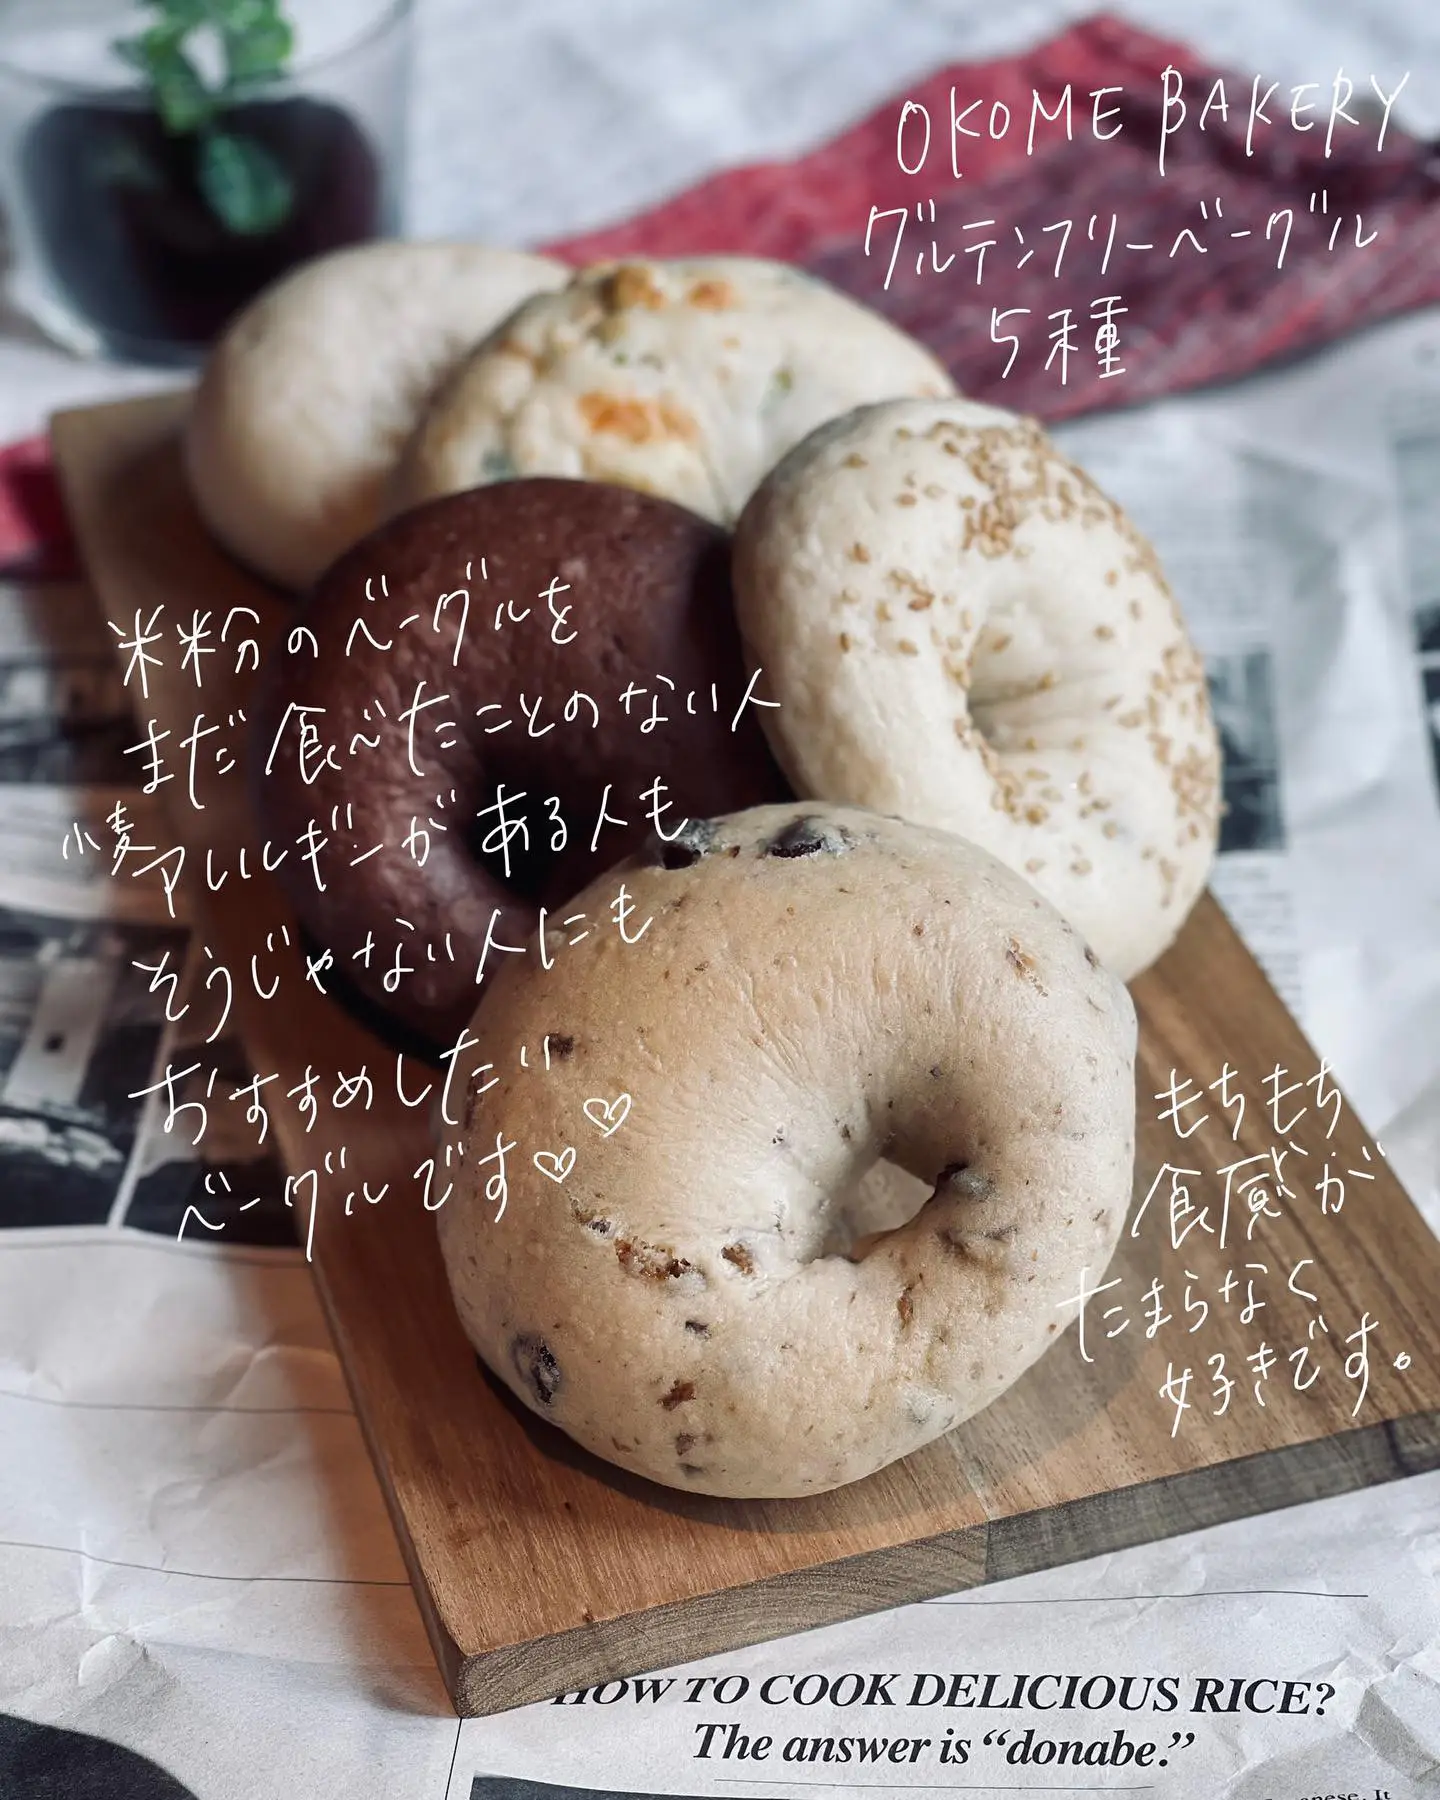 OKOME BAKERY
グルテンフリーベーグル
5種
米粉のベーグルを
まだ食べたことのない人
小麦アレルギーがある人も
そうじゃない人にも
おすすめしたい
ベーグルです♡♡
もちもち
食感が
たまらなく
好きです。
HOW TO COOK DELICIOUS RICE?
The answer is “donabe.”
It